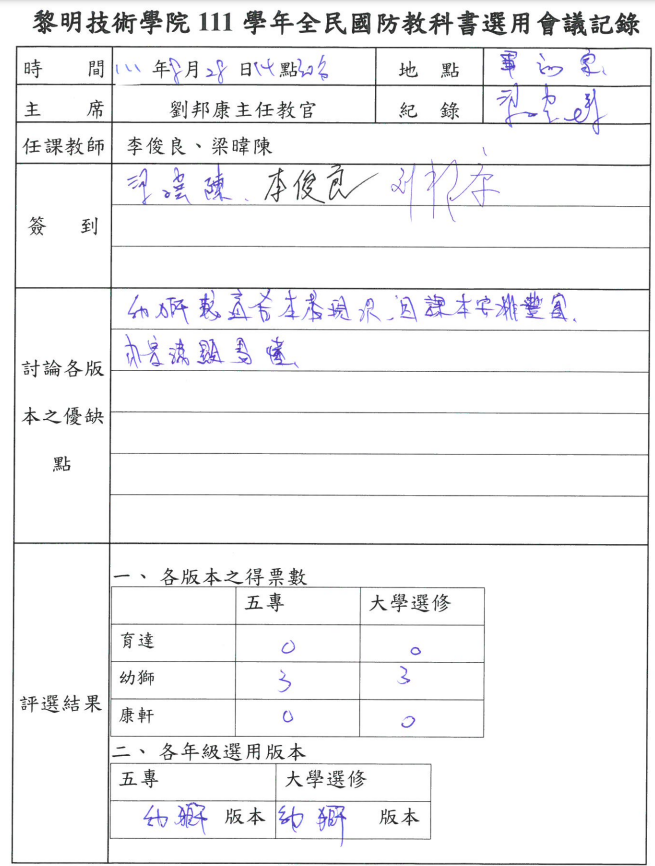 黎明技術學院 111 學年全民國防教科書選用會議記錄
時 間 111 年8月28日14點 地 點 軍訓室
主 席 劉邦康主任教官 紀 錄 梁暐陳
任課教師 李俊良、梁暉陳
簽 到 梁暐陳、李俊良 刘邦康
討論各版本之優缺點
幼獅較適合本校現況,因課本安排豐富、
內容淺顯易懂。
評選結果
一、 各版本之得票數
五專 大學選修
育達 0 0
幼獅 3 3
康軒 0 0
二、 各年級選用版本
五專 大學選修
幼獅 版本 幼獅 版本